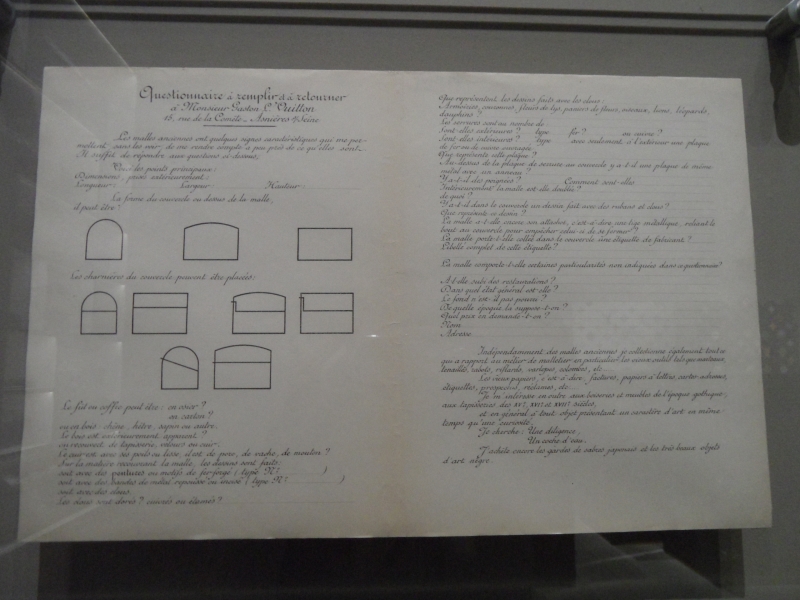 Questionnaire à remplir et à retourner
à Monsieur Gaston L. Vuitton
15, rue de la Comète _ Asnières s/Seine
Les malles anciennes ont quelques signes caractéristiques qui me per-
mettent, sans les voir, de me rendre compte à peu près de ce qu'elles sont.
Il suffit de répondre aux questions ci-dessous,
les points principaux:
Dimensions, prises extérieurement:
Longueur: Largeur Hauteur:
La forme du couvercle ou dessus de la malle,
il peut être:
Les charnières du couvercle peuvent être placées:
Le fût ou coffre peut être: en osier?
en carton?
ou en bois: chêne, hêtre, sapin ou autre.
Le bois est extérieurement apparent?
ou recouvert de tapisserie, velours ou cuir.
Le cuir est avec ses poils ou lisse, il est de porc, de vache, de mouton?
Sur la matière recouvrant la malle, les dessins sont faits:
soit avec des pentures ou motifs de fer forgé (type N° )
soit avec des bandes de métal repoussé ou incisé (type N° )
soit avec des clous.
Les clous sont dorés? cuivrés ou étamés?
Que représentent les dessins faits avec les clous:
Armoiries, couronnes, fleurs de lys, paniers de fleurs, oiseaux, lions, léopards,
dauphins?
Les serrures sont au nombre de
Sont-elles extérieures? type fer? ou cuivre?
Sont-elles intérieures? type avec seulement à l'extérieur une plaque
de forme de cuivre ouvragée.
Que représente cette plaque?
Au-dessus de la plaque de serrure au couvercle y a-t-il une plaque de même
métal avec un anneau?
Y a-t-il des poignées? Comment sont-elles
Intérieurement la malle est-elle doublée?
de quoi?
Y a-t-il dans le couvercle un dessin fait avec des rubans et clous?
Que représente ce dessin?
La malle a-t-elle encore son attache, c'est-à-dire une tige métallique, reliant le
bout au couvercle pour empêcher celui-ci de se fermer?
La malle porte-t-elle collée dans le couvercle une étiquette de fabricant?
Libellé complet de cette étiquette?
La malle comporte-t-elle certaines particularités non indiquées dans ce questionnaire?
A-t-elle subi des restaurations?
Dans quel état général est-elle?
Le fond n'est-il pas pourri?
De quelle époque la suppose-t-on?
Quel prix en demande-t-on?
Nom
Adresse
Indépendamment des malles anciennes je collectionne également tout ce
qui a rapport au métier de malletier en particulier les vieux outils tels que marteaux,
tenailles, rabots, riflards, varlopes, colombes, etc...
Les vieux papiers, c'est-à-dire: factures, papiers à lettres, cartes-adresses,
étiquettes, prospectus, réclames, etc...
Je m'intéresse en outre aux boiseries et meubles de l'époque gothique,
aux tapisseries des XVe, XVIe et XVIIe siècles,
et en général à tout objet présentant un caractère d'art en même
temps qu'une curiosité.
Je cherche: Une diligence,
Un coche d'eau.
J'achète encore les gardes de sabres japonais et les très beaux objets
d'art nègre.